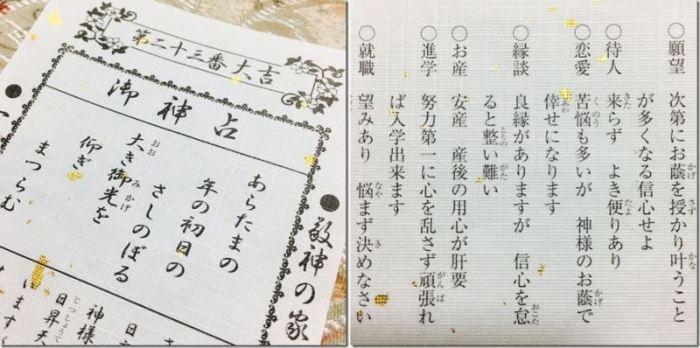 第二十三番大吉
御神占
●敬神の家
あらたまの
年の初日の
さしのぼる
大き御光を
仰ぎ
まつらむ
神様
日昇天
○願望 次第にお蔭を授かり叶うこと
が多くなる信心せよ
○待人 来らず よき便りあり
○恋愛 苦悩も多いが 神様のお蔭で
倖せになります
○縁談 良縁がありますが 信心を怠
ると整い難い
○お産 安産 産後の用心が肝要
○進学 努力第一に心を乱さず頑張れ
ば入学出来ます
○就職 望みあり 悩まず決めなさい